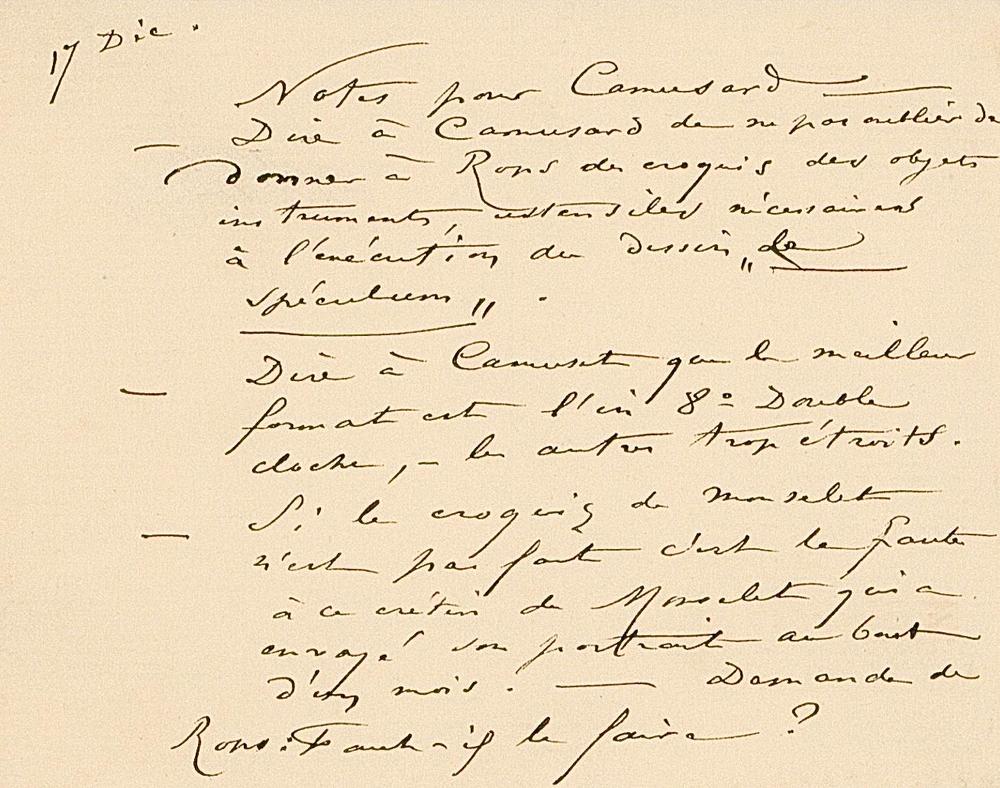 17 Déc.
Notes pour Camusard —
— Dire à Camusard de ne pas oublier de
donner à Rops des croquis des objets
instruments, ustensiles nécessaires
à l'exécution du dessin „de
spéculum„ .
— Dire à Camuset que le meilleur
format est l'in 8º Double
cloche, – les autres trop étroits.
— Si le croquis de Monselet
n'est pas fait c'est la faute
à ce crétin de Monselet qui a
envoyé son portrait au bout
d'un mois. — Demande de
Rops: Faut-il le faire ?